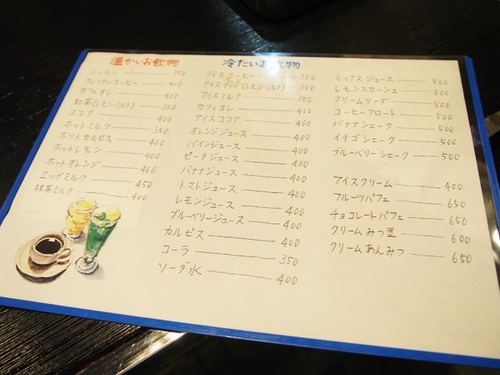 温かいお飲物
コーヒー 350
ウィンナーコーヒー 400
カフェオレ 400
紅茶(レモン・ミルク) 350
ココア 400
ホットミルク 350
ホットカルピス 400
ホットレモン 400
ホットオレンヂ 400
エッグミルク 450
抹茶ミルク 400
冷たいお飲物
アイスコーヒー 350
アイスティー(レモン・ミルク) 350
アイスミルク 350
カフェオレ 400
アイスココア 400
オレンジジュース 400
パインジュース 400
ピーチジュース 400
バナナジュース 400
トマトジュース 400
レモンジュース 400
ブルーベリージュース 400
カルピス 400
コーラ 350
ソーダ水 400
ミックスジュース 500
レモンスカッシュ 500
クリームソーダ 500
コーヒーフロート 500
バナナシェーク 500
イチゴシェーク 500
ブルーベリーシェーク 500
アイスクリーム 400
フルーツパフェ 650
チョコレートパフェ 650
クリームみつ豆 600
クリームあんみつ 650